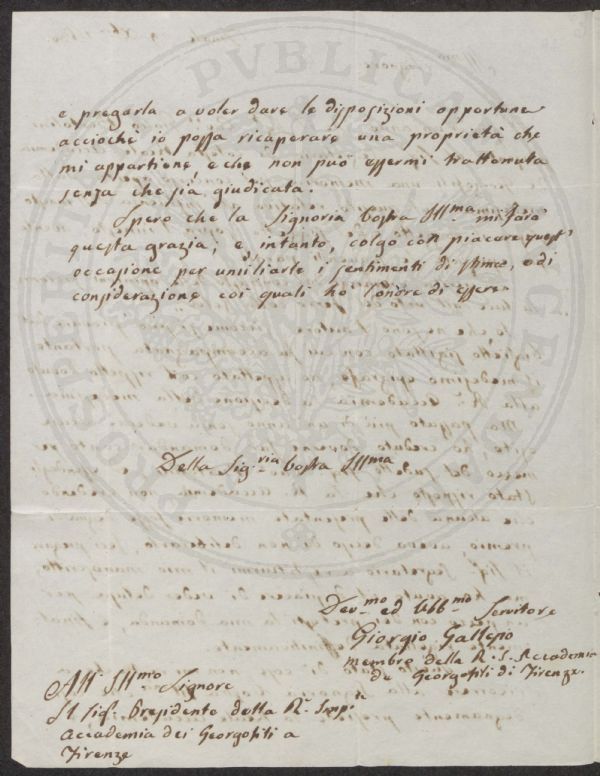 e pregarla a voler dare le disposizioni opportune
acciochè io possa ricuperare una proprietà che
mi appartiene, e che non può essermi trattenuta
senza che sia giudicata.
Spero che la Signoria Vostra Illma mi farà
questa grazia; e intanto, colgo con piacere quest'
occasione per umiliarle i sentimenti di stima, e di
considerazione coi quali ho l'onore di essere
Della Sig.ria Vostra Illma
Dev.mo ed Ubb.mo Servitore
Giorgio Gallesio
membro della R. I. Accademia
de Georgofili di Firenze.
All' Illmo Signore
Il Sig. Presidente della R. Imp.le
Accademia dei Georgofili a
Firenze
PROSPERITATI PUBLICAE AUGENDAE